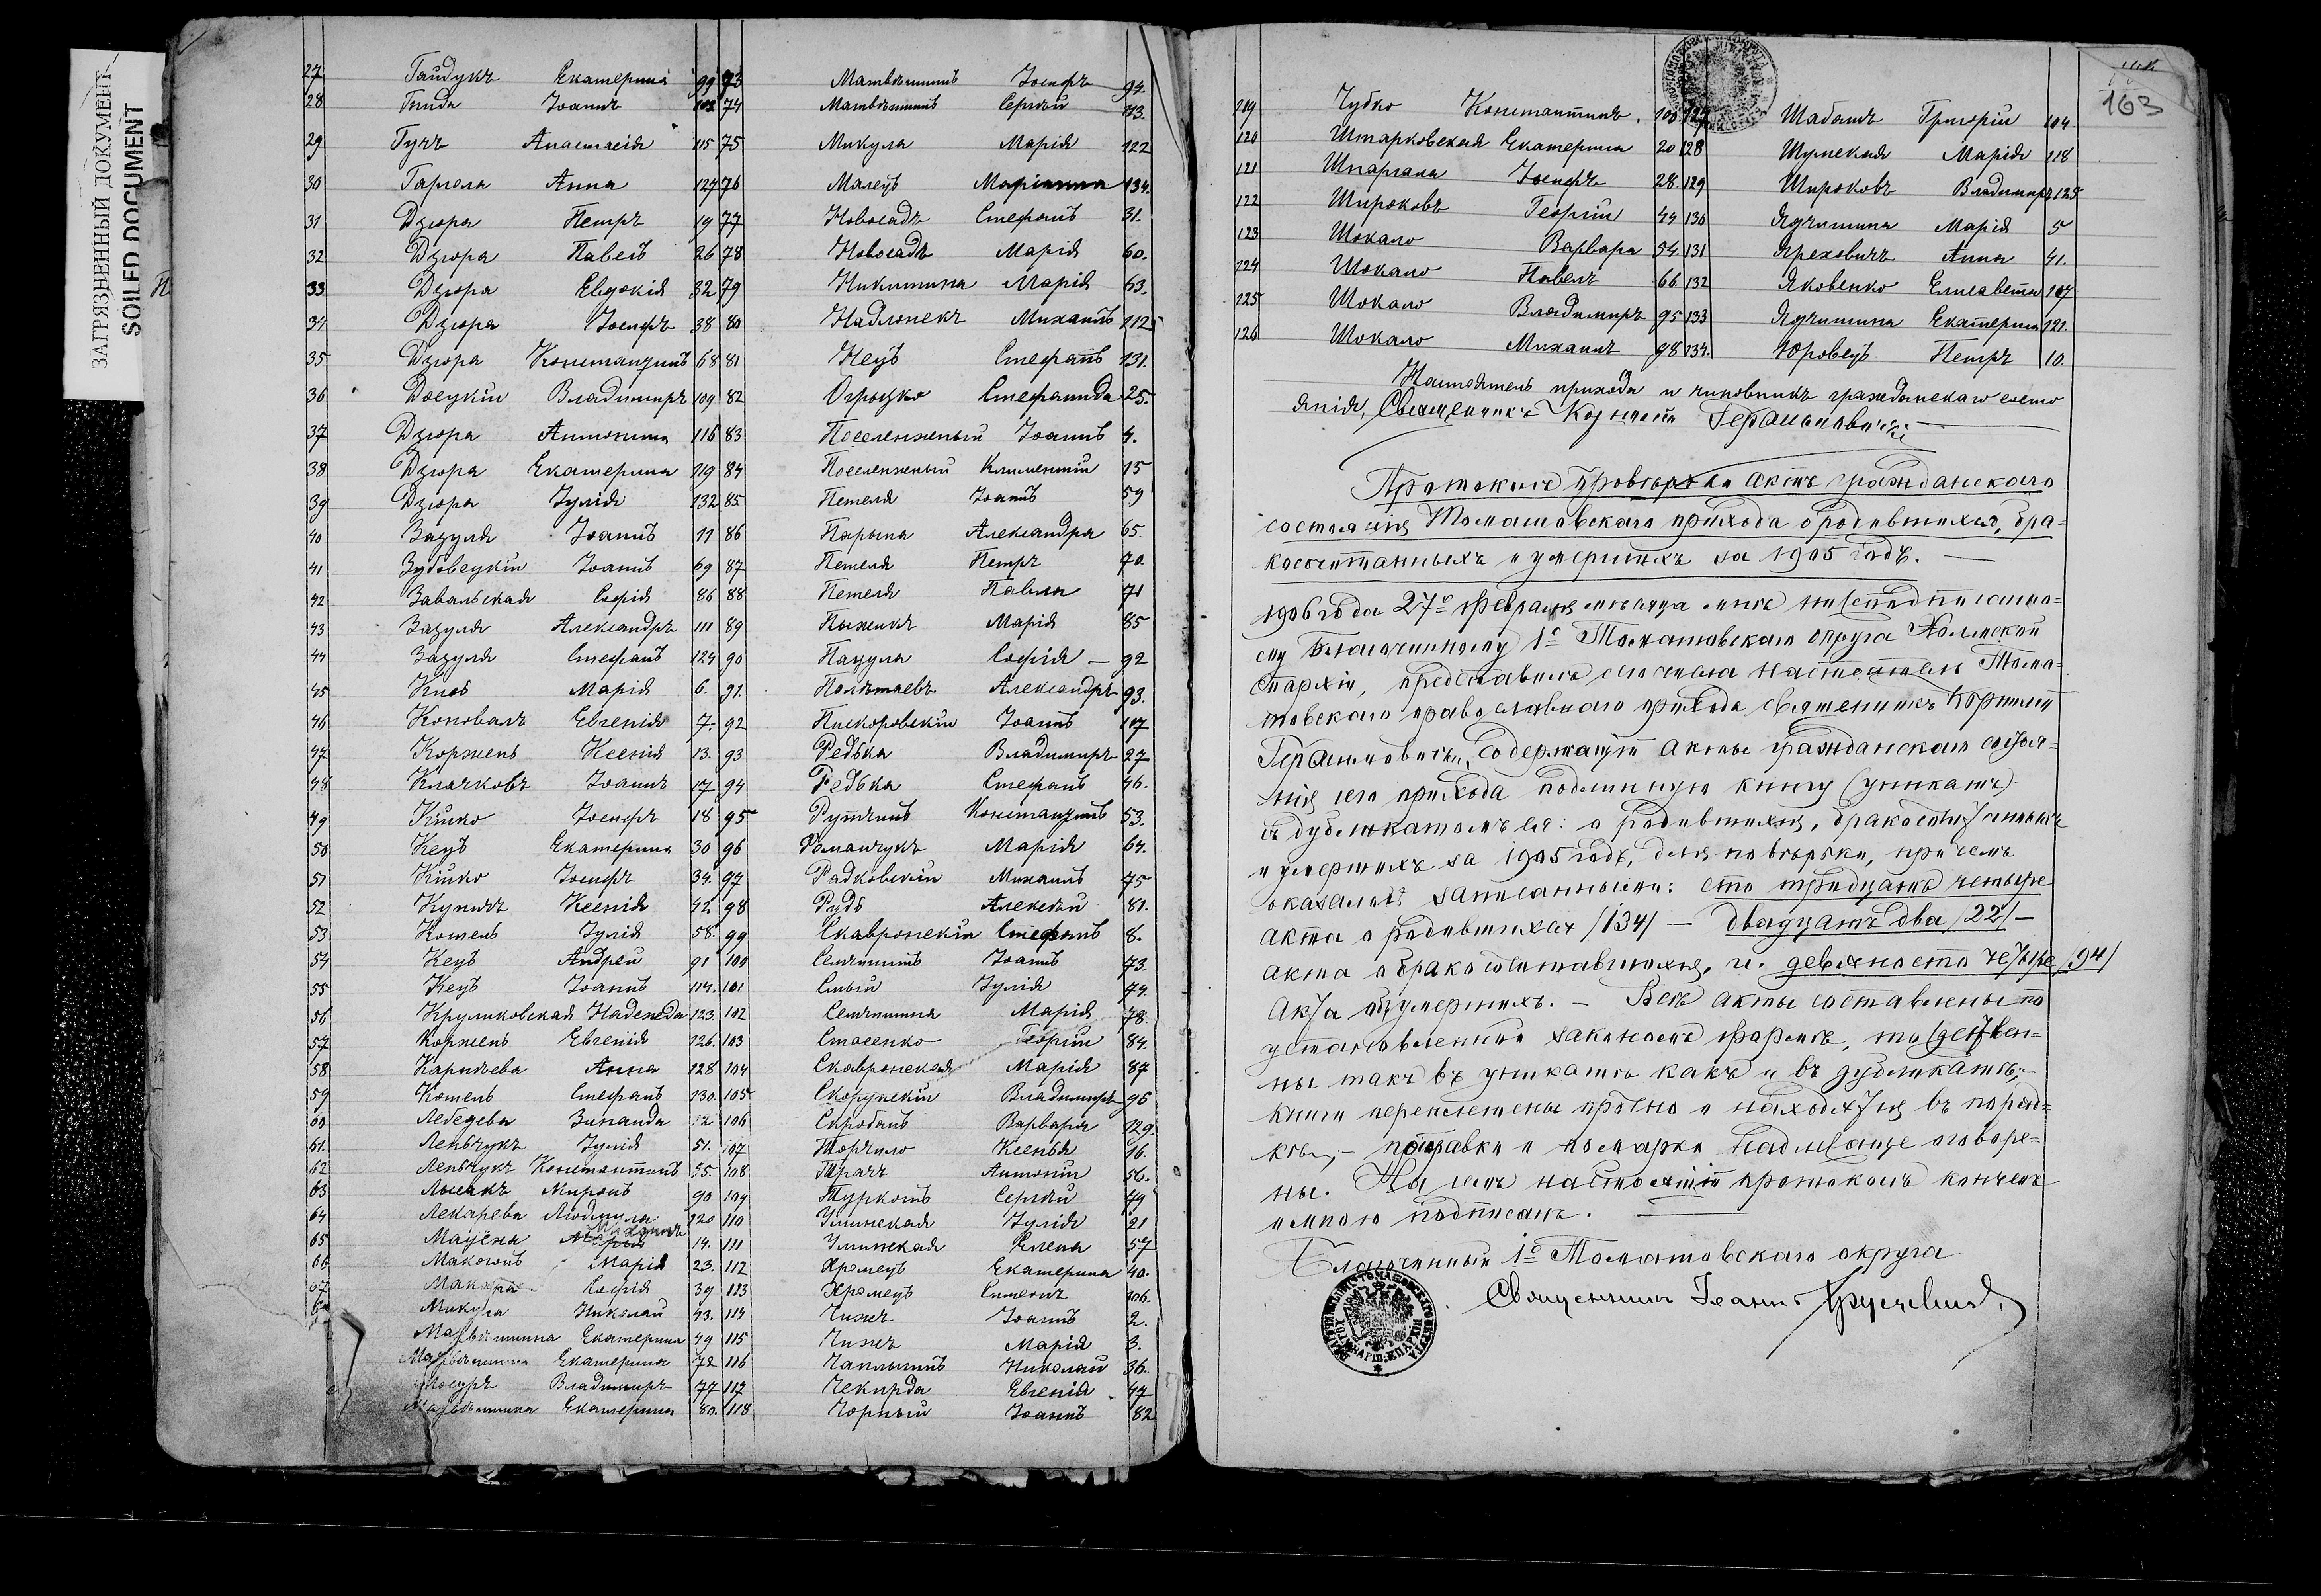 ЗАГРЯЗНЕННЫЙ ДОКУМЕНТ
SOILED DOCUMENT
27 Гайдукъ Екатерина 99
28 Гнида Іоаннъ 102
29 Гучъ Анастасія 115
30 Гаргола Анна 127
31 Дзюра Петръ 19
32 Дзюра Павелъ 26
33 Дзюра Евдокія 32
34 Дзюра Іосифъ 38
35 Дзюра Константинъ 68
36 Владиміръ 109
37 Дзюра Антонина 116
38 Дзюра Екатерина 119
39 Дзюра Іулія 132
40 Зазуля Іоаннъ 11
41 Іоаннъ 69
42 Завальская Софія 86
43 Зазуля Александръ 111
44 Зазуля Стефанъ 124
45 Марія 6.
46 Коновалъ Евгенія 7.
47 Коржень Ксенія 13.
48 Клачковъ Іоаннъ 17
49 Кійко Іосифъ 18
50 Кецъ Екатерина 30
51 Кійко Іосифъ 34.
52 Купичъ Ксенія 42
53 Котель Іулія 58.
54 Кецъ Андрей 91
55 Кецъ Іоаннъ 114.
56 Круликовская Надежда 123
57 Коржень Евгенія 126
58 Карпѣева Анна 128
59 Котель Стефанъ 130.
60 Лебедева Зинаида
61. Леньчукъ Іулія 51.
62 Леньчукъ Константинъ 55.
63 Лысакъ Миронъ 90
64 Лекарева Людмула 120
65 14.
66 Марія 23.
67 Софія 39
Микула Николай 43.
Матвѣишина Екатерина 49
Матвѣишина Екатерина 72
Владиміръ 77
Матвѣишина Екатерина 80.
73 Матвѣишинъ Іосифъ 94.
74 Матвѣишинъ Сергѣй 113.
75 Микула Марія 122
76 Малецъ Маріанна 134.
77 Новосадъ Стефанъ 31.
78 Новосадъ Марія 60.
79 Никитина Марія 63.
80 Надлонекъ Михаилъ 112
81 Нецъ Стефанъ 131.
82 Огрызко Стефанида 25.
83 Поселенженый Іоаннъ 4.
84 Поселенженый Климентій 15
85 Петеля Іоаннъ 59
86 Парына Александра 65
87 Петеля Петръ 70
88 Петеля Павлъ 71
89 Пыжикъ Марія 85
90 Пацула Софія – 92
91. Полѣтаевъ Александръ 93.
92 Пискоровскій Іоаннъ 107
93 Редька Владиміръ 27
94 Редька Стефанъ 46.
95 Рутчинъ Константинъ 53.
96 Романчукъ Марія 64.
97 Радковскій Михаилъ 75
98 Рудь Алексѣй 81.
99 Скавронскій Стефанъ 8.
100 Семчишинъ Іоаннъ 73.
101 Іулія 74.
102 Семчишина Марія 78.
103 Стасенко Георгій 84.
104 Скавронская Марія 87
105 Скорупскій Владиміръ 96
106 Скробанъ Варвара 129
107 Торчило Ксенья 16.
108 Трачъ Антоній 56.
109 Туркотъ Сергѣй 79
110 Улинская Іулія 21
111 Улинская Елена 57
112 Хромецъ Екатерина 40.
113 Хромецъ Симеонъ 106.
114 Чижъ Іоаннъ 2.
115 Чижъ Марія 3.
116 Чаплыгинъ Николай 36.
117 Чекирда Евгенія 47
118 Чорный Іоаннъ 82
163
119 Чубко Константинъ. 100
120 Штарковская Екатерина 20
121 Шпаргала Іосифъ 28.
122 Широковъ Георгій 44
123 Шокало Варвара 54
124 Шокало Павелъ 66
125 Шокало Владиміръ 95
126 Шокало Михаилъ 98
127 Шабатъ Григорій 104.
128 Шумская Марія 118
129 Широковъ Владиміръ 125
130 Ядчишина Марія 5
131 Яреховичъ Анна 41.
132 Яковенко Елисавета 107
133 Ядчишина Екатерина 121.
134. Юровецъ Петръ 10.
Настоятель прихода и чиновникъ гражданскаго состо
янія, Священникъ Корнилій Герасимовичъ
Протоколъ провѣрки актъ гражданскаго
состоянія Томашовскаго прихода о родившихся, бра-
косочетанныхъ и умершихъ за 1905 годъ. —
1906 года 27го февраля мѣсяца мнѣ нижеподписавше-
му Благочинному 1го Томашовскаго округа Холмской
епархіи, представилъ настоятель Тома-
шовскаго православнаго прихода священникъ Корнилій
Герасимовичъ, содержащую акты гражданскаго состоя-
нія его прихода подлинную книгу (уникатъ)
съ дубликатомъ ея: о родившихся, бракосочетанныхъ
и умершихъ за 1905 годъ, для повѣрки, при чемъ
оказалось записанными: сто тридцать четыре
акта о родившихся /134/ — двадцать два /22/ —
акта о бракосочетавшихся, и девяносто четыре /94/
акта объ умершихъ. — Всѣ акты составлены по
установленной закономъ формѣ, тождествен-
ны такъ въ уникатѣ какъ и въ дубликатѣ; —
книги переплетены прочно и находятся въ поряд-
кѣ; — поправки и помарки надлежаще оговоре-
ны. На семъ настоящій протоколъ конченъ
и мною подписанъ.
Благочинный 1го Томашовскаго округа
Священникъ Іоаннъ